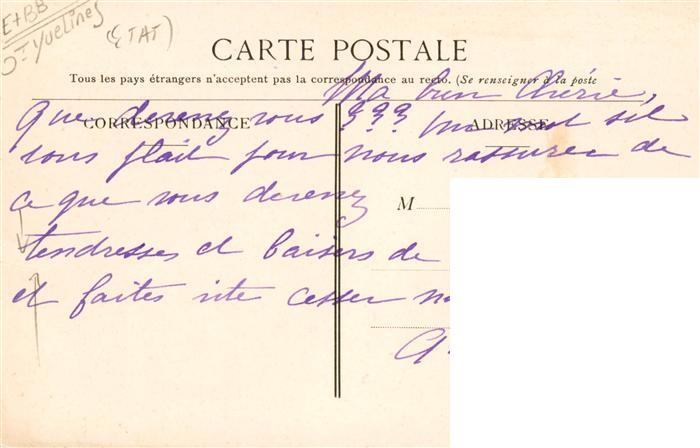 E+BB
St Yvelines
(ETAT)
CARTE POSTALE
Tous les pays étrangers n'acceptent pas la correspondance au recto. (Se renseigner à la poste
Ma bien Chérie,
CORRESPONDANCE
ADRESSE
Que devenez vous ??? un mot s'il
vous plait pour nous rassurer de
ce que vous devenez
M
tendresses et baisers de
et faites vite cesser